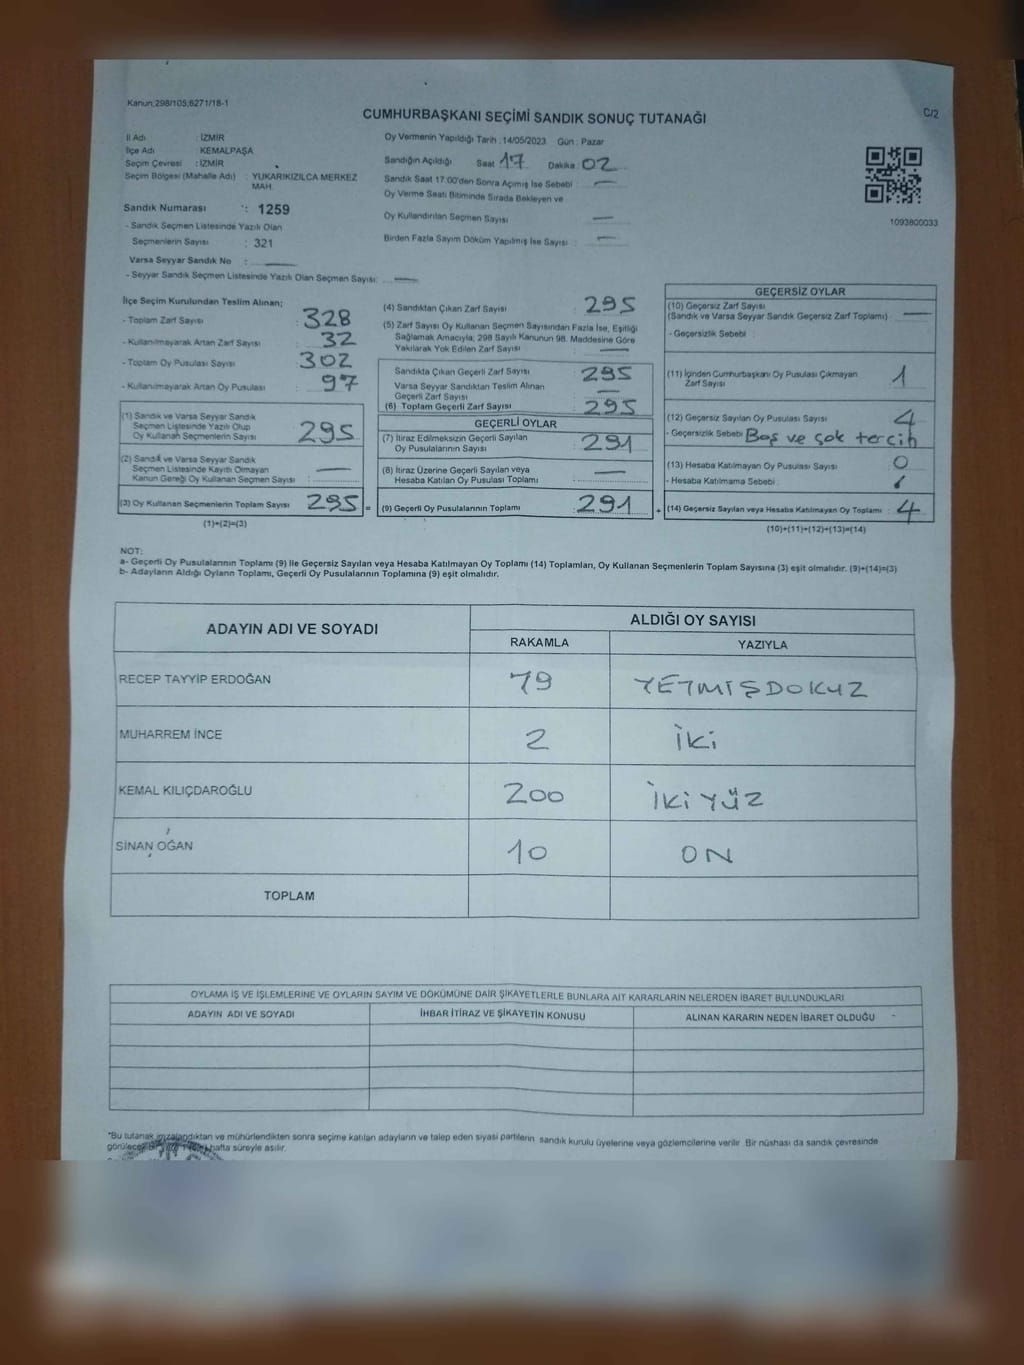 Kanun;298/105;6271/18-1
CUMHURBAŞKANI SEÇİMİ SANDIK SONUÇ TUTANAĞI
C/2
İl Adı : İZMİR
İlçe Adı : KEMALPAŞA
Seçim Çevresi : İZMİR
Seçim Bölgesi (Mahalle Adı) : YUKARIKIZILCA MERKEZ MAH.
Sandık Numarası : 1259
- Sandık Seçmen Listesinde Yazılı Olan
Seçmenlerin Sayısı : 321
Varsa Seyyar Sandık No : —
- Seyyar Sandık Seçmen Listesinde Yazılı Olan Seçmen Sayısı: —
Oy Vermenin Yapıldığı Tarih : 14/05/2023 Gün : Pazar
Sandığın Açıldığı Saat 17 Dakika 02
Sandık Saat 17:00'den Sonra Açımış İse Sebebi : —
Oy Verme Saati Bitiminde Sırada Bekleyen ve
Oy Kullandırılan Seçmen Sayısı —
Birden Fazla Sayım Döküm Yapılmış İse Sayısı : —
1093800033
İlçe Seçim Kurulundan Teslim Alınan;
- Toplam Zarf Sayısı : 328
- Kullanılmayarak Artan Zarf Sayısı : 32
- Toplam Oy Pusulası Sayısı : 302
- Kullanılmayarak Artan Oy Pusulası : 97
(1) Sandık ve Varsa Seyyar Sandık
Seçmen Listesinde Yazılı Olup
Oy Kullanan Seçmenlerin Sayısı : 295
(2) Sandık ve Varsa Seyyar Sandık
Seçmen Listesinde Kayıtlı Olmayan
Kanun Gereği Oy Kullanan Seçmen Sayısı : —
(3) Oy Kullanan Seçmenlerin Toplam Sayısı : 295 =
(1)+(2)=(3)
(4) Sandıktan Çıkan Zarf Sayısı : 295
(5) Zarf Sayısı Oy Kullanan Seçmen Sayısından Fazla İse, Eşitliği
Sağlamak Amacıyla, 298 Sayılı Kanunun 98. Maddesine Göre
Yakılarak Yok Edilen Zarf Sayısı : —
Sandıkta Çıkan Geçerli Zarf Sayısı : 295
Varsa Seyyar Sandıktan Teslim Alınan
Geçerli Zarf Sayısı : —
(6) Toplam Geçerli Zarf Sayısı : 295
GEÇERLİ OYLAR
(7) İtiraz Edilmeksizin Geçerli Sayılan
Oy Pusulalarının Sayısı : 291
(8) İtiraz Üzerine Geçerli Sayılan veya
Hesaba Katılan Oy Pusulası Toplamı : —
(9) Geçerli Oy Pusulalarının Toplamı : 291 +
GEÇERSİZ OYLAR
(10) Geçersiz Zarf Sayısı
(Sandık ve Varsa Seyyar Sandık Geçersiz Zarf Toplamı) : —
- Geçersizlik Sebebi :
(11) İçinden Cumhurbaşkanı Oy Pusulası Çıkmayan
Zarf Sayısı : 1
(12) Geçersiz Sayılan Oy Pusulası Sayısı : 4
- Geçersizlik Sebebi : Boş ve çok tercih
(13) Hesaba Katılmayan Oy Pusulası Sayısı : 0
- Hesaba Katılmama Sebebi :
(14) Geçersiz Sayılan veya Hesaba Katılmayan Oy Toplamı : 4
(10)+(11)+(12)+(13)=(14)
NOT:
a- Geçerli Oy Pusulalarının Toplamı (9) ile Geçersiz Sayılan veya Hesaba Katılmayan Oy Toplamı (14) Toplamları, Oy Kullanan Seçmenlerin Toplam Sayısına (3) eşit olmalıdır. (9)+(14)=(3)
b- Adayların Aldığı Oyların Toplamı, Geçerli Oy Pusulalarının Toplamına (9) eşit olmalıdır.
ADAYIN ADI VE SOYADI
ALDIĞI OY SAYISI
RAKAMLA YAZIYLA
RECEP TAYYİP ERDOĞAN 79 YETMİŞDOKUZ
MUHARREM İNCE 2 İKİ
KEMAL KILIÇDAROĞLU 200 İKİYÜZ
SİNAN OĞAN 10 ON
TOPLAM
OYLAMA İŞ VE İŞLEMLERİNE VE OYLARIN SAYIM VE DÖKÜMÜNE DAİR ŞİKAYETLERLE BUNLARA AİT KARARLARIN NELERDEN İBARET BULUNDUKLARI
ADAYIN ADI VE SOYADI İHBAR İTİRAZ VE ŞİKAYETİN KONUSU ALINAN KARARIN NEDEN İBARET OLDUĞU
*Bu tutanak imzalandıktan ve mühürlendikten sonra seçime katılan adayların ve talep eden siyasi partilerin sandık kurulu üyelerine veya gözlemcilerine verilir. Bir nüshası da sandık çevresinde
hafta süreyle asılır.